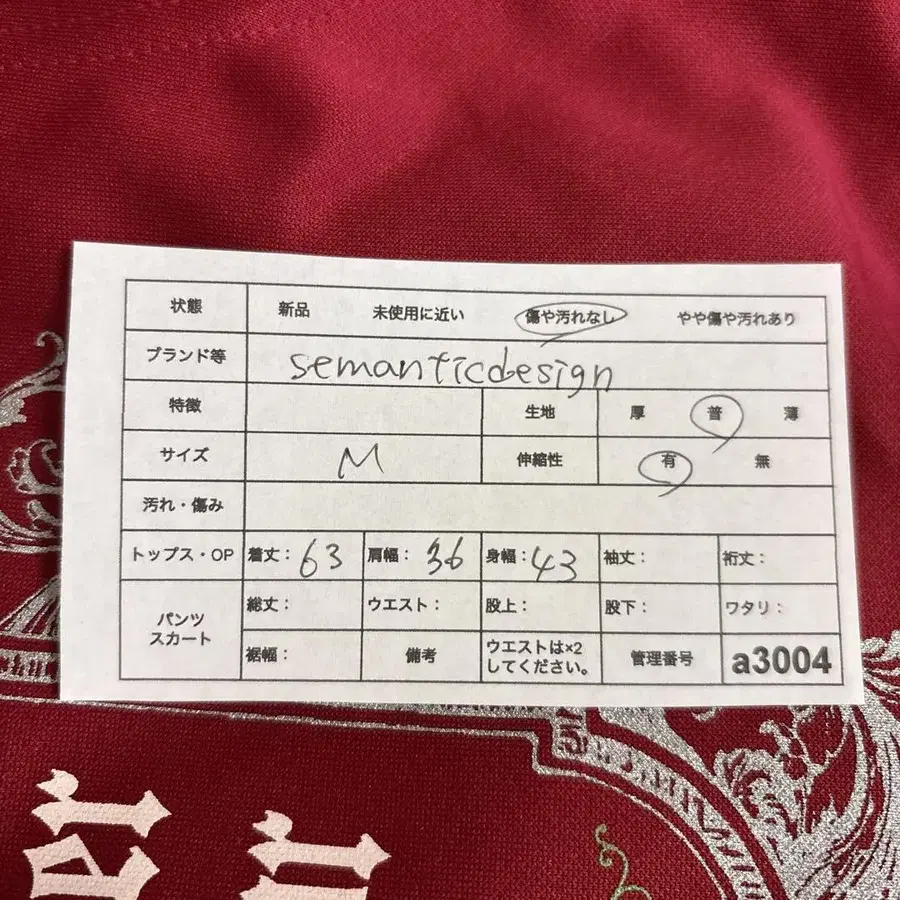 状態 新品 未使用に近い 傷や汚れなし やや傷や汚れあり
ブランド等 semanticdesign
特徴 生地 厚 普 薄
サイズ M 伸縮性 有 無
汚れ・傷み
トップス・OP 着丈: 63 肩幅: 36 身幅: 43 袖丈: 裄丈:
パンツ
スカート
総丈: ウエスト: 股上: 股下: ワタリ:
裾幅: 備考 ウエストは×2
してください。
管理番号 a3004